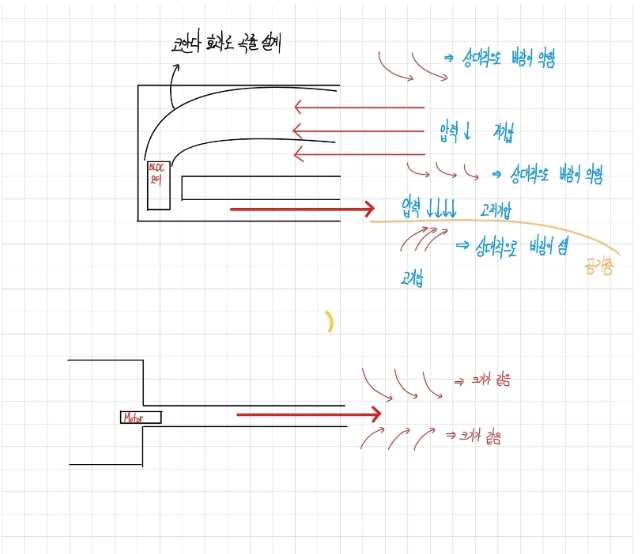 코안다 효과로 곡률 설계
⇒ 상대적으로 바람이 약함
압력 ↓ 저기압
BLDC
모터
⇒ 상대적으로 바람이 약함
압력 ↓↓↓↓ 고저기압
⇒ 상대적으로 바람이 셈
공기층
고기압
Motor
⇒ 크기가 같음
⇒ 크기가 같음